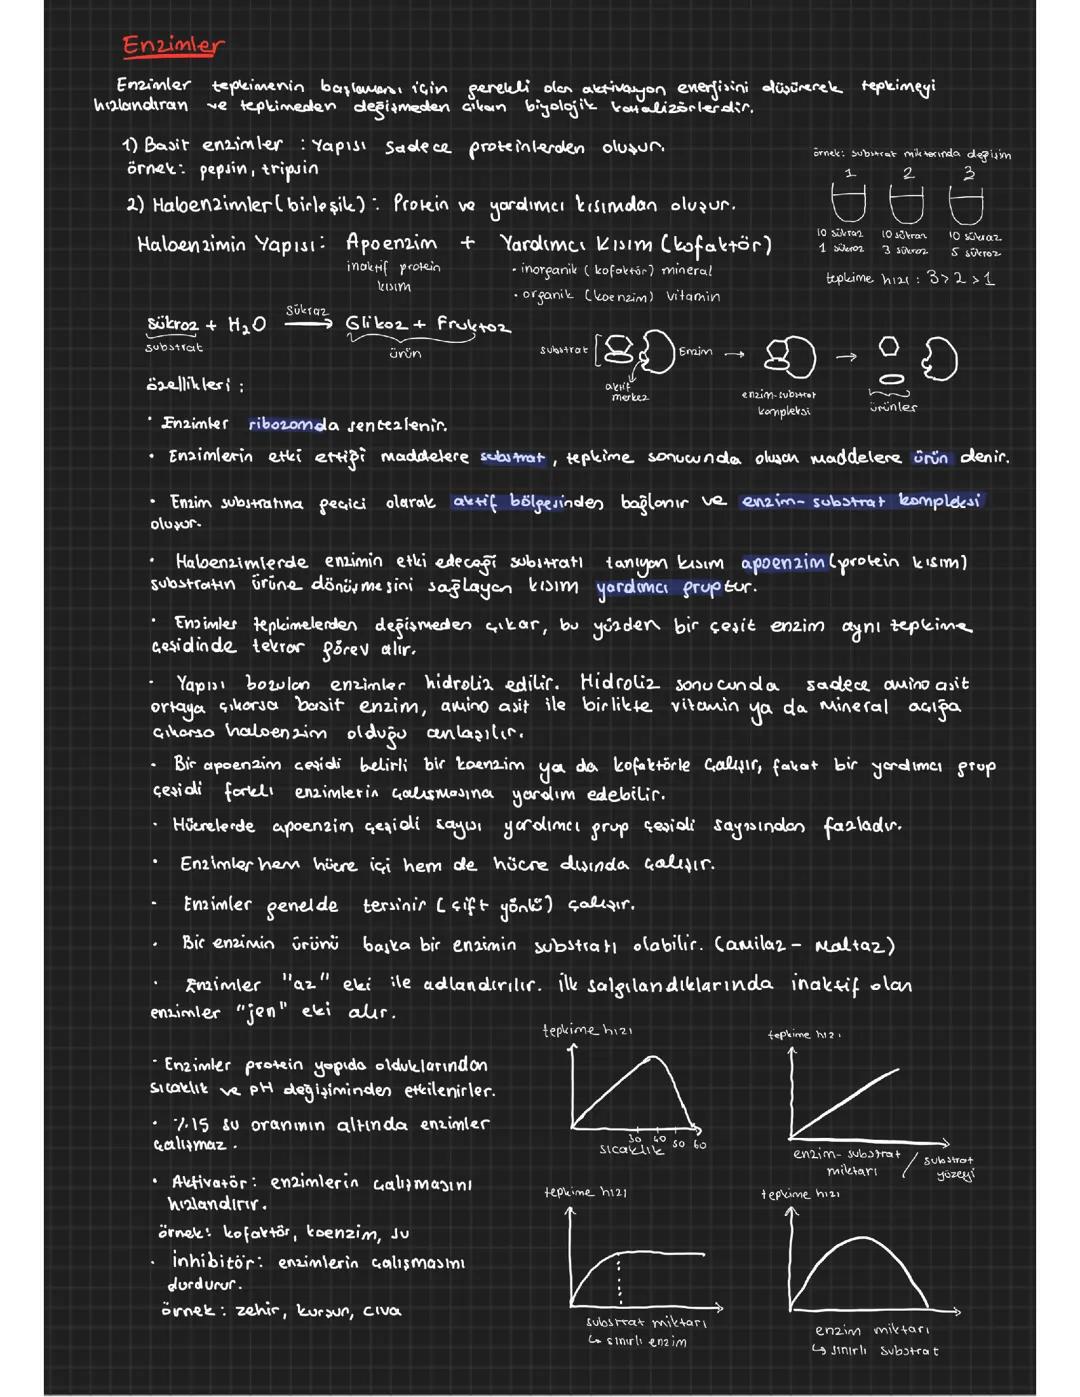 Enzimler
Enzimler tepkimenin başlaması için gerekli olan aktivasyon enerjisini düşürerek tepkimeyi
hızlandıran ve tepkimeden değişmeden çıkan biyolojik katalizörlerdir.
1) Basit enzimler : Yapısı sadece proteinlerden oluşur.
örnek: pepsin, tripsin
2) Haloenzimler (birleşik): Protein ve yardımcı kısımdan oluşur.
örnek: substrat miktarında değişim
1 2 3
10 sükraz 10 sükraz 10 sükraz
1 sükroz 3 sükroz 5 sükroz
tepkime hızı : 3>2>1
Haloenzimin Yapısı: Apoenzim + Yardımcı Kısım (kofaktör)
inaktif protein
kısım
• inorganik (kofaktör) mineral
• organik (koenzim) vitamin
Sükraz
Sükroz + H₂O → Glikoz + Fruktoz
substrat
ürün
substrat Enzim → →
aktif
merkez
enzim-substrat
kompleksi
ürünler
özellikleri :
• Enzimler ribozomda sentezlenir.
• Enzimlerin etki ettiği maddelere substrat, tepkime sonucunda oluşan maddelere ürün denir.
• Enzim substratına geçici olarak aktif bölgesinden bağlanır ve enzim-substrat kompleksi
oluşur.
• Haloenzimlerde enzimin etki edeceği substratı tanıyan kısım apoenzim (protein kısım)
substratın ürüne dönüşmesini sağlayan kısım yardımcı gruptur.
• Enzimler tepkimelerden değişmeden çıkar, bu yüzden bir çeşit enzim aynı tepkime
çeşidinde tekrar görev alır.
• Yapısı bozulan enzimler hidroliz edilir. Hidroliz sonucunda sadece amino asit
ortaya çıkarsa basit enzim, amino asit ile birlikte vitamin ya da mineral açığa
çıkarsa haloenzim olduğu anlaşılır.
• Bir apoenzim çeşidi belirli bir koenzim ya da kofaktörle çalışır, fakat bir yardımcı grup
çeşidi farklı enzimlerin çalışmasına yardım edebilir.
• Hücrelerde apoenzim çeşidi sayısı yardımcı grup çeşidi sayısından fazladır.
• Enzimler hem hücre içi hem de hücre dışında çalışır.
• Enzimler genelde tersinir (çift yönlü) çalışır.
• Bir enzimin ürünü başka bir enzimin substratı olabilir. (amilaz - maltaz)
• Enzimler "az" eki ile adlandırılır. İlk salgılandıklarında inaktif olan
enzimler "jen" eki alır.
• Enzimler protein yapıda olduklarından
sıcaklık ve pH değişiminden etkilenirler.
• %15 su oranının altında enzimler
çalışmaz.
• Aktivatör: enzimlerin çalışmasını
hızlandırır.
örnek: kofaktör, koenzim, su
• inhibitör: enzimlerin çalışmasını
durdurur.
örnek : zehir, kurşun, cıva
tepkime hızı
30 40 50 60
sıcaklık
tepkime hızı
enzim-substrat
miktarı / substrat
yüzeyi
tepkime hızı
substrat miktarı
↳ sınırlı enzim
tepkime hızı
enzim miktarı
↳ sınırlı substrat